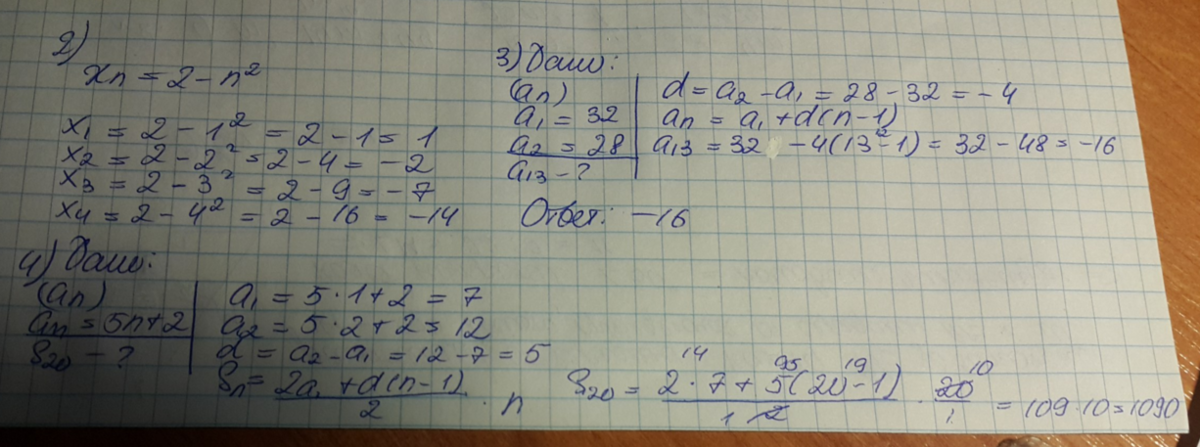 2)
xn = 2 - n²
x1 = 2 - 1² = 2 - 1 = 1
x2 = 2 - 2² = 2 - 4 = -2
x3 = 2 - 3² = 2 - 9 = -7
x4 = 2 - 4² = 2 - 16 = -14
3) Дано:
(an)
a1 = 32
a2 = 28
a13 - ?
d = a2 - a1 = 28 - 32 = -4
an = a1 + d(n-1)
a13 = 32 - 4(13-1) = 32 - 48 = -16
Ответ: -16
4) Дано:
(an)
an = 5n+2
S20 - ?
a1 = 5·1+2 = 7
a2 = 5·2+2 = 12
d = a2 - a1 = 12 - 7 = 5
Sn = (2a1 + d(n-1))/2 · n
14 95 19 10
S20 = (2·7 + 5(20-1))/2 · 20/1 = 109·10 = 1090